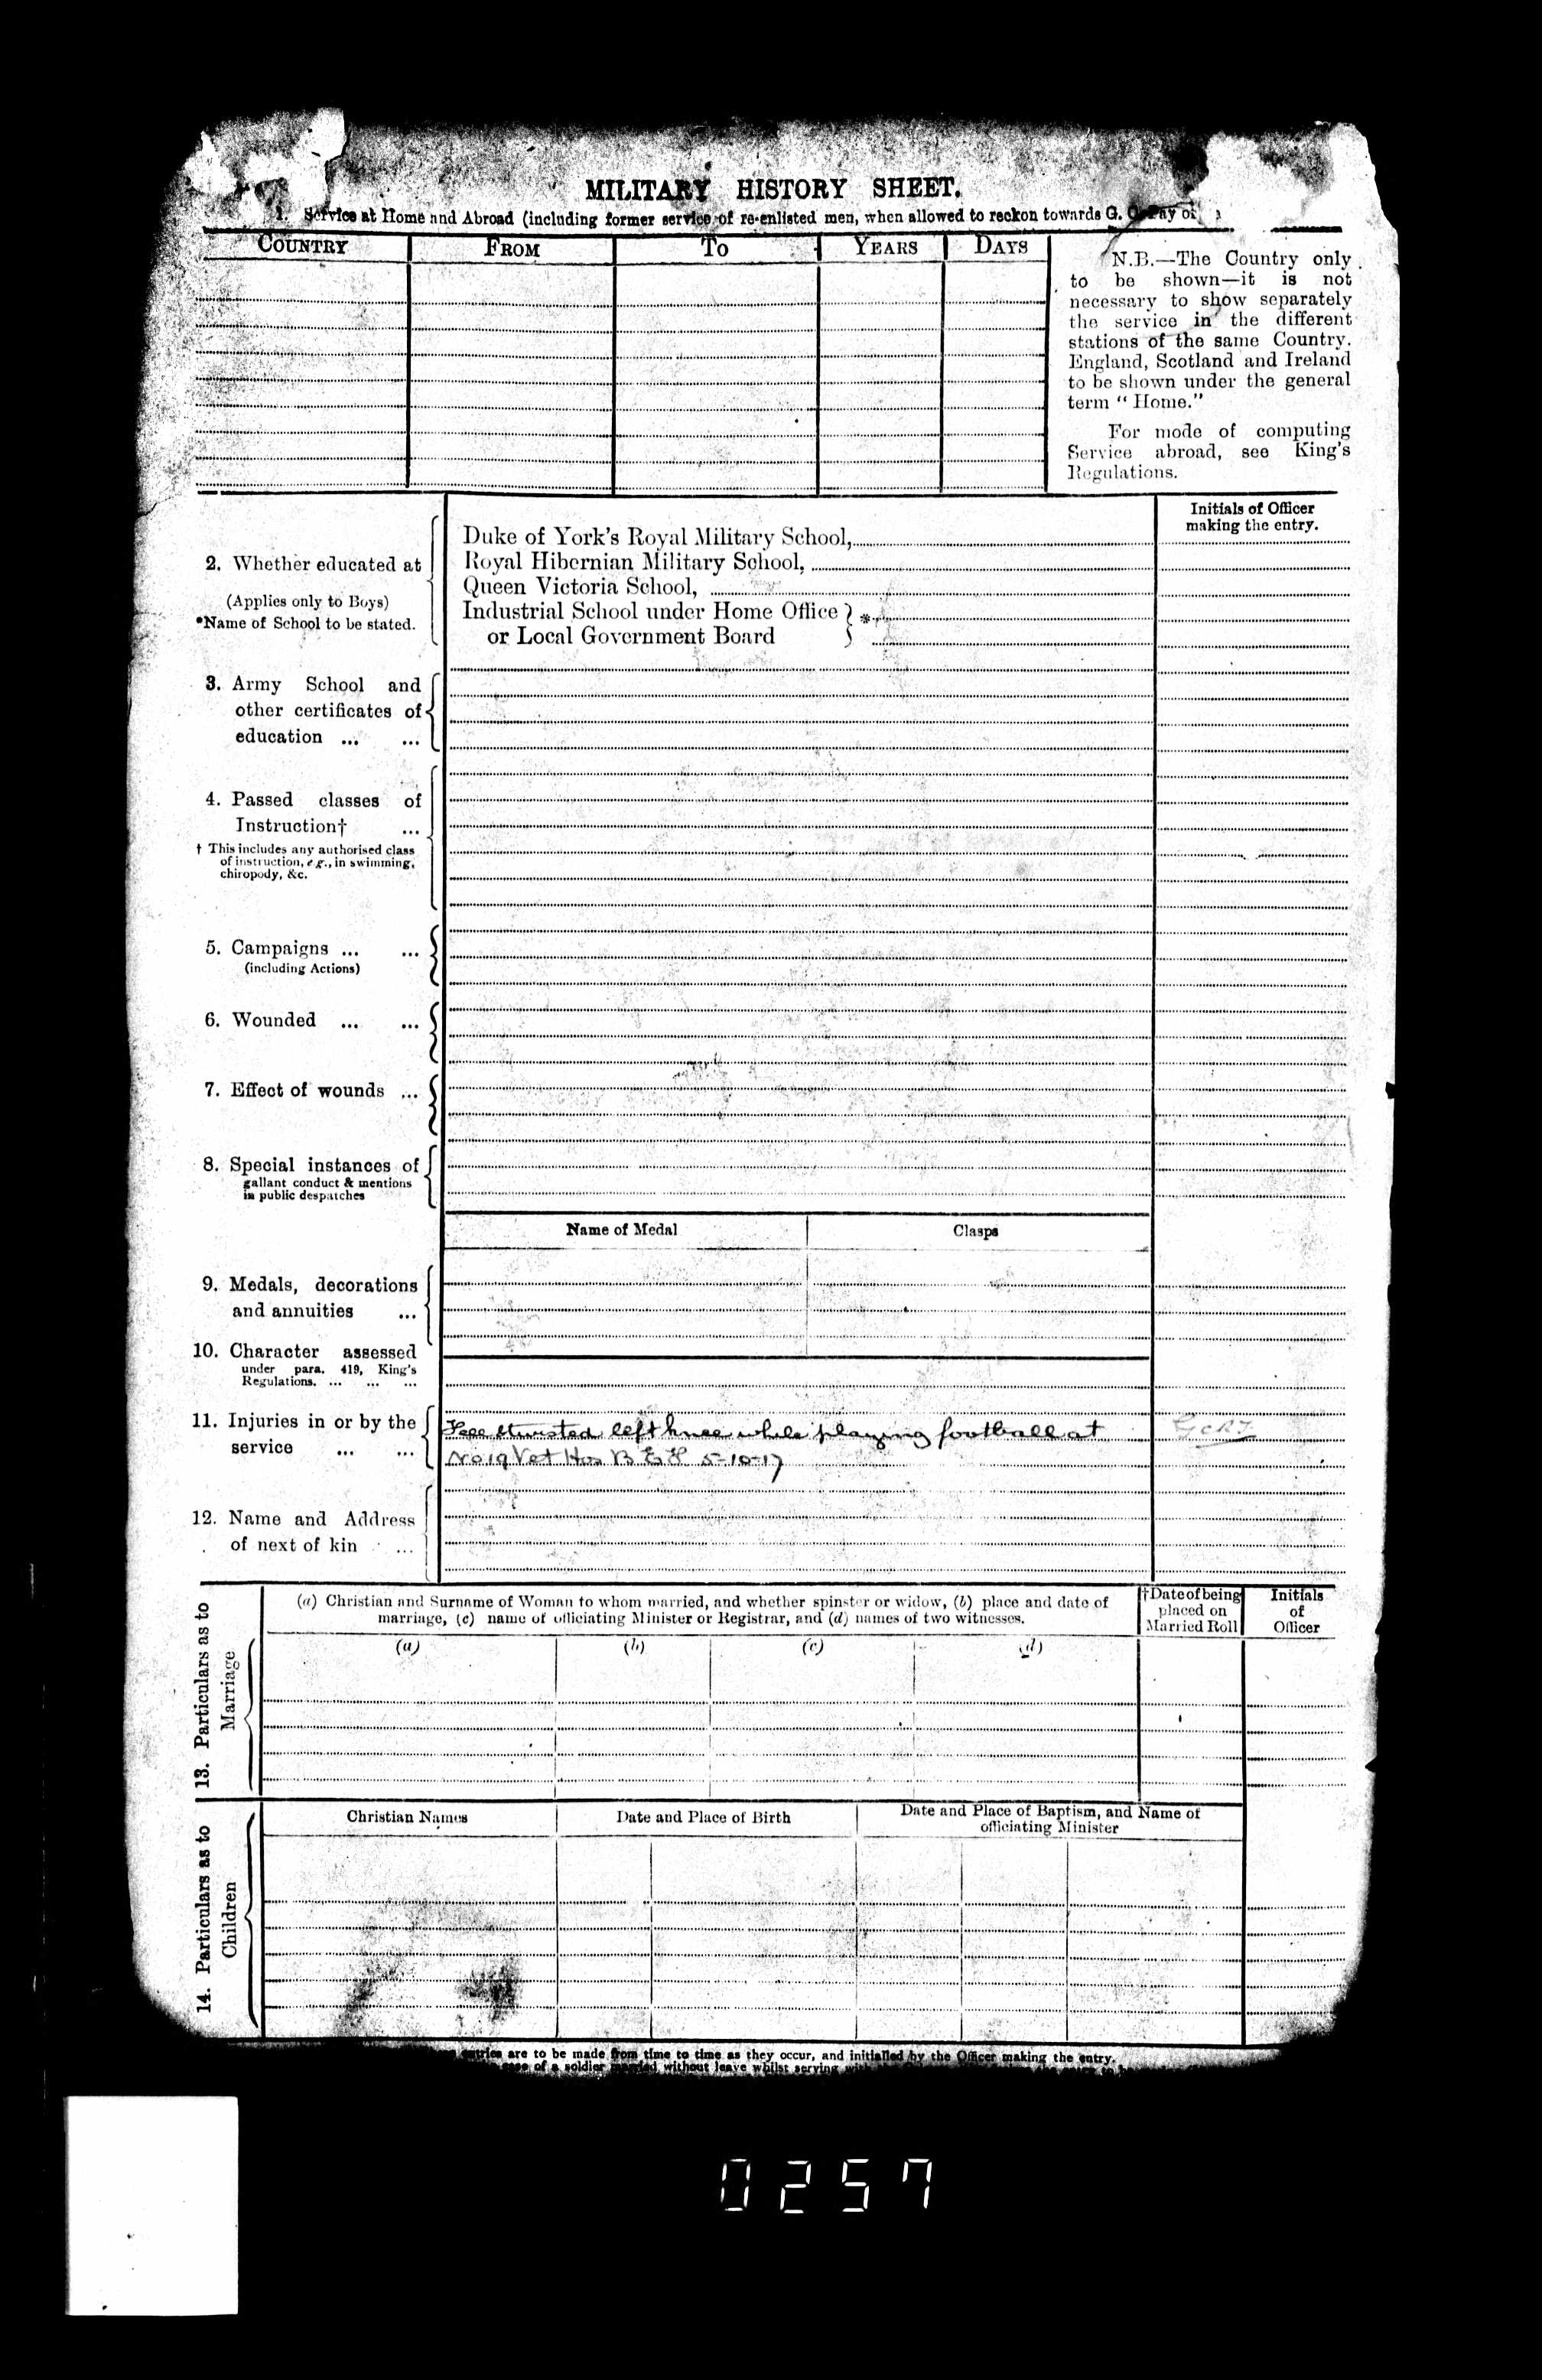 MILITARY HISTORY SHEET.
1. Service at Home and Abroad (including former service of re-enlisted men, when allowed to reckon towards G. C. Pay or
COUNTRY FROM TO YEARS DAYS
N.B.—The Country only
to be shown—it is not
necessary to show separately
the service in the different
stations of the same Country.
England, Scotland and Ireland
to be shown under the general
term "Home."
For mode of computing
Service abroad, see King's
Regulations.
Initials of Officer
making the entry.
2. Whether educated at
(Applies only to Boys)
*Name of School to be stated.
Duke of York's Royal Military School,
Royal Hibernian Military School,
Queen Victoria School,
Industrial School under Home Office
or Local Government Board } *
3. Army School and
other certificates of
education ... ...
4. Passed classes of
Instruction† ...
† This includes any authorised class
of instruction, e.g., in swimming,
chiropody, &c.
5. Campaigns ... ...
(including Actions)
6. Wounded ... ...
7. Effect of wounds ...
8. Special instances of
gallant conduct & mentions
in public despatches
Name of Medal Clasps
9. Medals, decorations
and annuities ...
10. Character assessed
under para. 419, King's
Regulations. ... ... ...
11. Injuries in or by the
service ... ...
twisted left knee while playing football at
No 19 Vet Hos B E F 5-10-17
12. Name and Address
of next of kin ...
13. Particulars as to
Marriage
(a) Christian and Surname of Woman to whom married, and whether spinster or widow, (b) place and date of
marriage, (c) name of officiating Minister or Registrar, and (d) names of two witnesses.
†Date of being
placed on
Married Roll
Initials
of
Officer
(a) (b) (c) (d)
14. Particulars as to
Children
Christian Names Date and Place of Birth
Date and Place of Baptism, and Name of
officiating Minister
entries are to be made from time to time as they occur, and initialled by the Officer making the entry.
case of a soldier married without leave whilst serving
0257